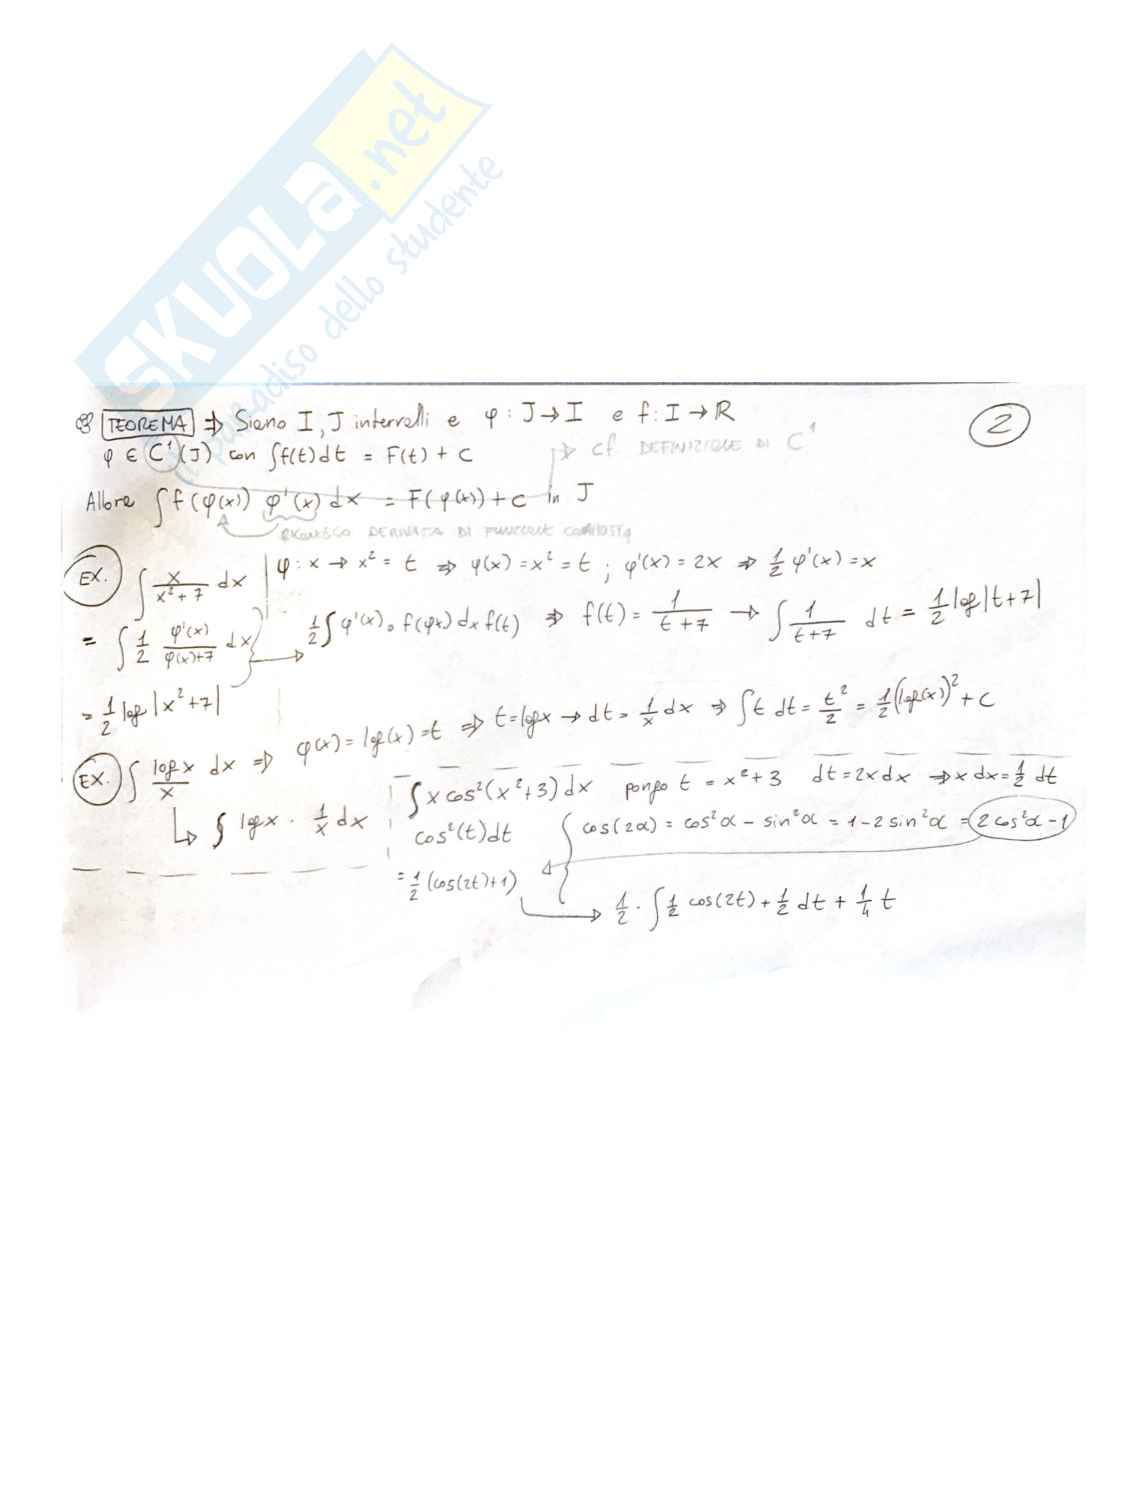 SKUOLA.net
il paradiso dello studente
2
TEOREMA ⇒ Siano I, J intervalli e φ : J → I e f : I → ℝ
φ ∈ C¹(J) con ∫f(t)dt = F(t) + c
cf. DEFINIZIONE DI C¹
Allora ∫f(φ(x)) φ'(x) dx = F(φ(x)) + c in J
RICONOSCO DERIVATA DI FUNZIONE COMPOSTA
EX. ∫ x/(x²+7) dx | φ : x → x² = t ⇒ φ(x) = x² = t ; φ'(x) = 2x ⇒ 1/2 φ'(x) = x
= ∫ 1/2 φ'(x)/(φ(x)+7) dx → 1/2 ∫ φ'(x) ∘ f(φ(x)) dx f(t) ⇒ f(t) = 1/(t+7) → ∫ 1/(t+7) dt = 1/2 log|t+7|
= 1/2 log|x²+7|
EX. ∫ log x/x dx ⇒ φ(x) = log(x) = t ⇒ t = log x → dt = 1/x dx ⇒ ∫t dt = t²/2 = 1/2 (log(x))² + c
↳ ∫ log x · 1/x dx
∫ x cos²(x²+3) dx pongo t = x²+3 dt = 2x dx ⇒ x dx = 1/2 dt
cos²(t)dt { cos(2α) = cos²α − sin²α = 1 − 2 sin²α = 2 cos²α − 1
= 1/2 (cos(2t)+1)
→ 1/2 · ∫ 1/2 cos(2t) + 1/2 dt + 1/4 t